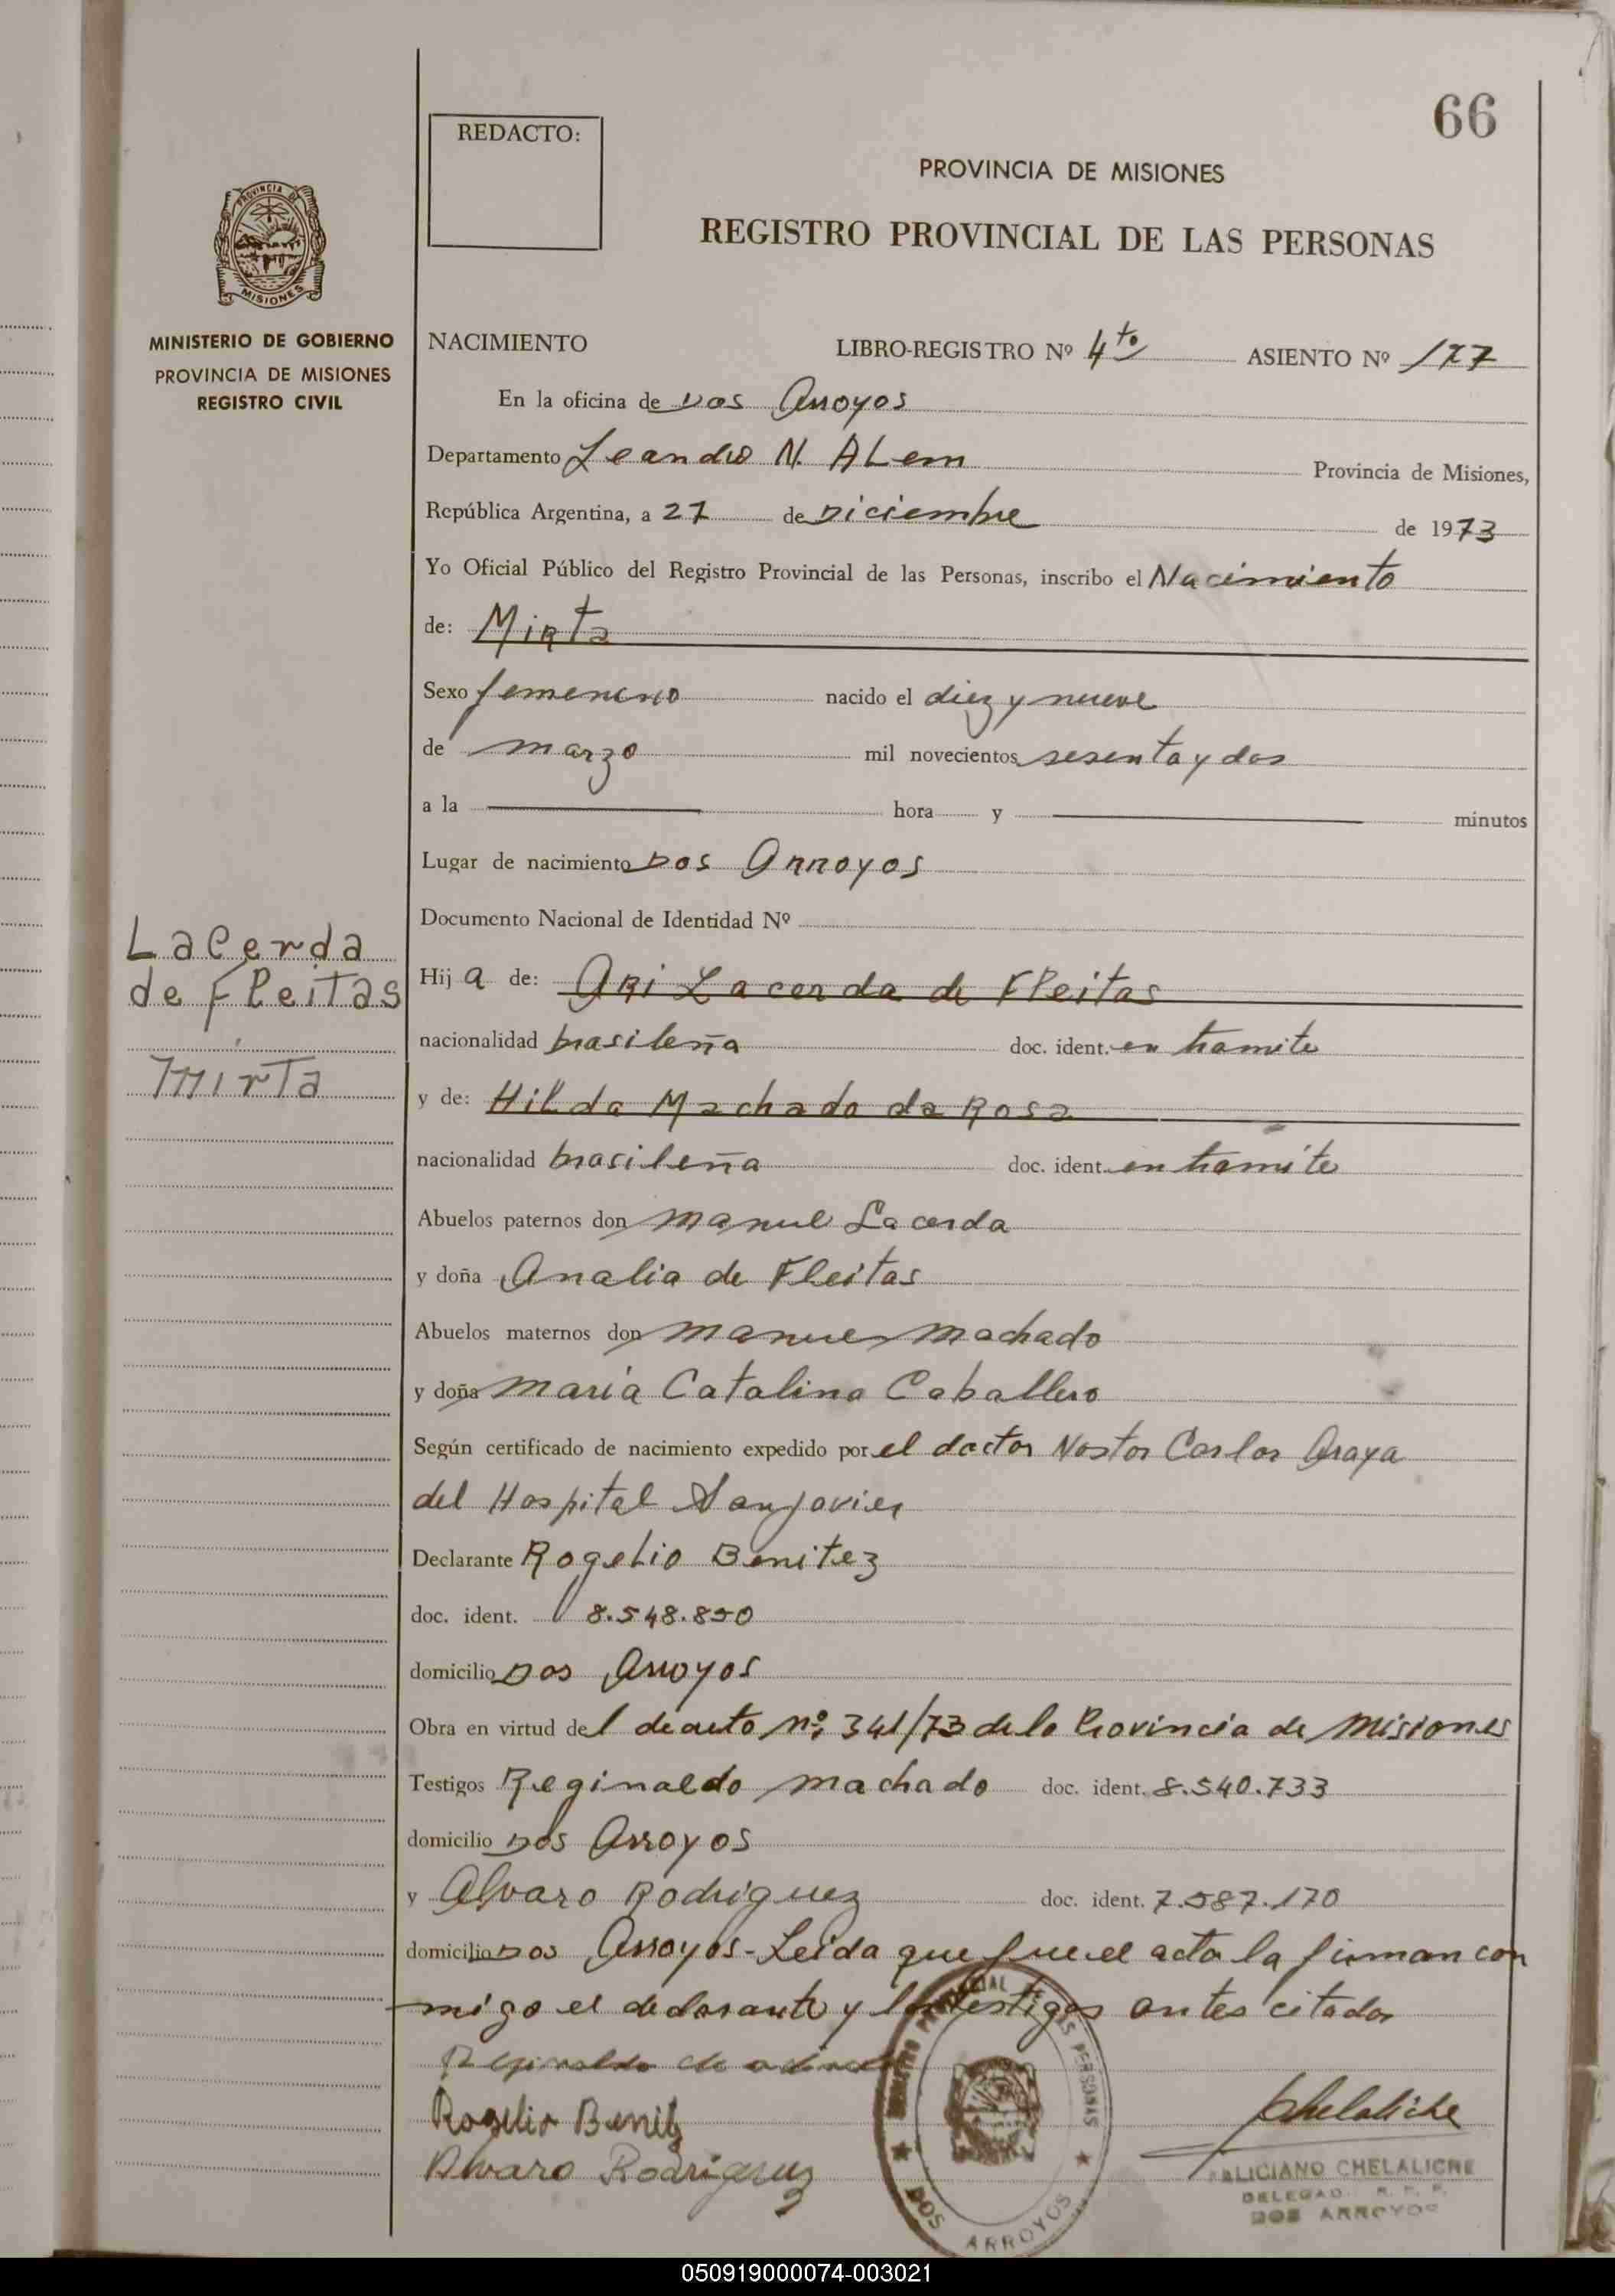 66
REDACTO:
PROVINCIA DE MISIONES
REGISTRO PROVINCIAL DE LAS PERSONAS
PROVINCIA DE
MISIONES
MINISTERIO DE GOBIERNO
PROVINCIA DE MISIONES
REGISTRO CIVIL
NACIMIENTO LIBRO-REGISTRO Nº 4to ASIENTO Nº 177
En la oficina de Dos Arroyos
Departamento Leandro N. ALem Provincia de Misiones,
República Argentina, a 27 de Diciembre de 1973
Yo Oficial Público del Registro Provincial de las Personas, inscribo el Nacimiento
de: Mirta
Sexo femenino nacido el diez y nueve
de marzo mil novecientos sesenta y dos
a la hora y minutos
Lugar de nacimiento Dos Arroyos
Documento Nacional de Identidad Nº
Lacerda
de Fleitas
Mirta
Hija de: Ari Lacerda de Fleitas
nacionalidad brasileña doc. ident. en tramite
y de: Hilda Machado da Rosa
nacionalidad brasileña doc. ident. en tramite
Abuelos paternos don Manuel Lacerda
y doña Analia de Fleitas
Abuelos maternos don Manuel Machado
y doña Maria Catalina Caballero
Según certificado de nacimiento expedido por el doctor Nestor Carlos Araya
del Hospital San Javier
Declarante Rogelio Benitez
doc. ident. 8.548.850
domicilio Dos Arroyos
Obra en virtud del decreto nº 341/73 de la Provincia de Misiones
Testigos Reginaldo Machado doc. ident. 8.540.733
domicilio Dos Arroyos
y Alvaro Rodriguez doc. ident. 7.587.170
domicilio Dos Arroyos - Leida que fue el acta la firman con
migo el declarante y los testigos antes citados
Rogelio Benitz
Alvaro Rodriguez
Chelaliche
FELICIANO CHELALICHE
DELEGADO R. P. P.
DOS ARROYOS
REGISTRO PROVINCIAL DE LAS PERSONAS
DOS ARROYOS
050919000074-003021